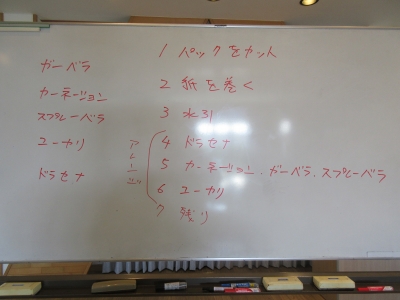 ガーベラ
カーネーション
スプレーベラ
ユーカリ
ドラセナ
1 パックをカット
2 紙を巻く
3 水引
アレンジ
4 ドラセナ
5 カーネーション、ガーベラ、スプレーベラ
6 ユーカリ
7 残り